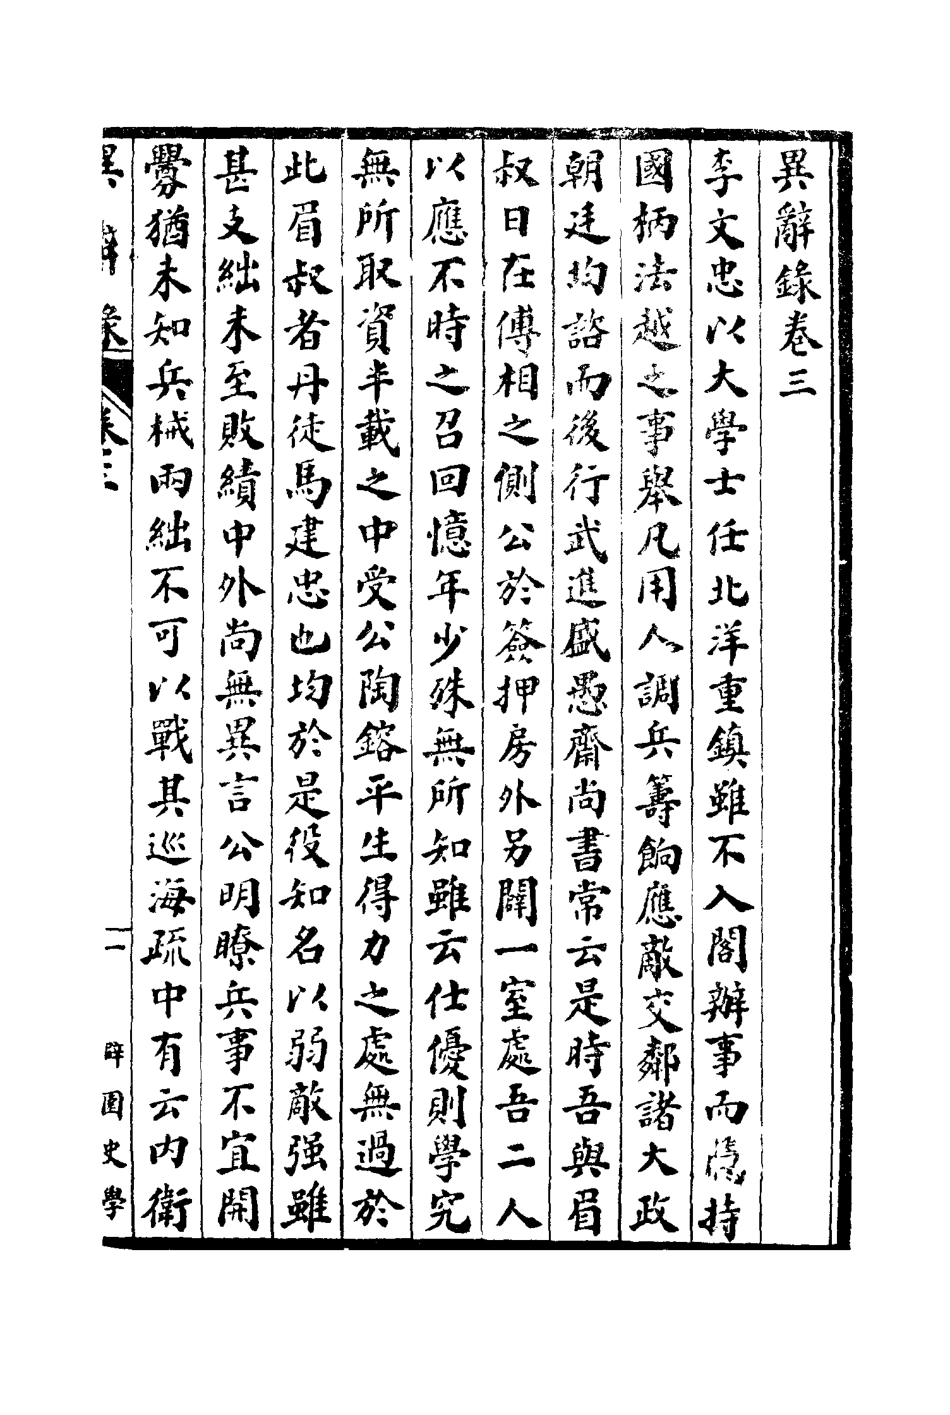 異辭錄卷三
李文忠以大學士任北洋重鎮雖不入閣辦事而隱持
國柄法越之事舉凡用人調兵籌餉應敵交鄰諸大政
朝廷均諮而後行武進盛愚齋尚書常云是時吾與眉
叔日在傅相之側公於簽押房外另闢一室處吾二人
以應不時之召回憶年少殊無所知雖云仕優則學究
無所取資半載之中受公陶鎔平生得力之處無過於
此眉叔者丹徒馬建忠也均於是役知名以弱敵强雖
甚支絀未至敗績中外尚無異言公明瞭兵事不宜開
釁猶未知兵械兩絀不可以戰其巡海疏中有云內衛
異辭錄 卷三 一 辟園史學